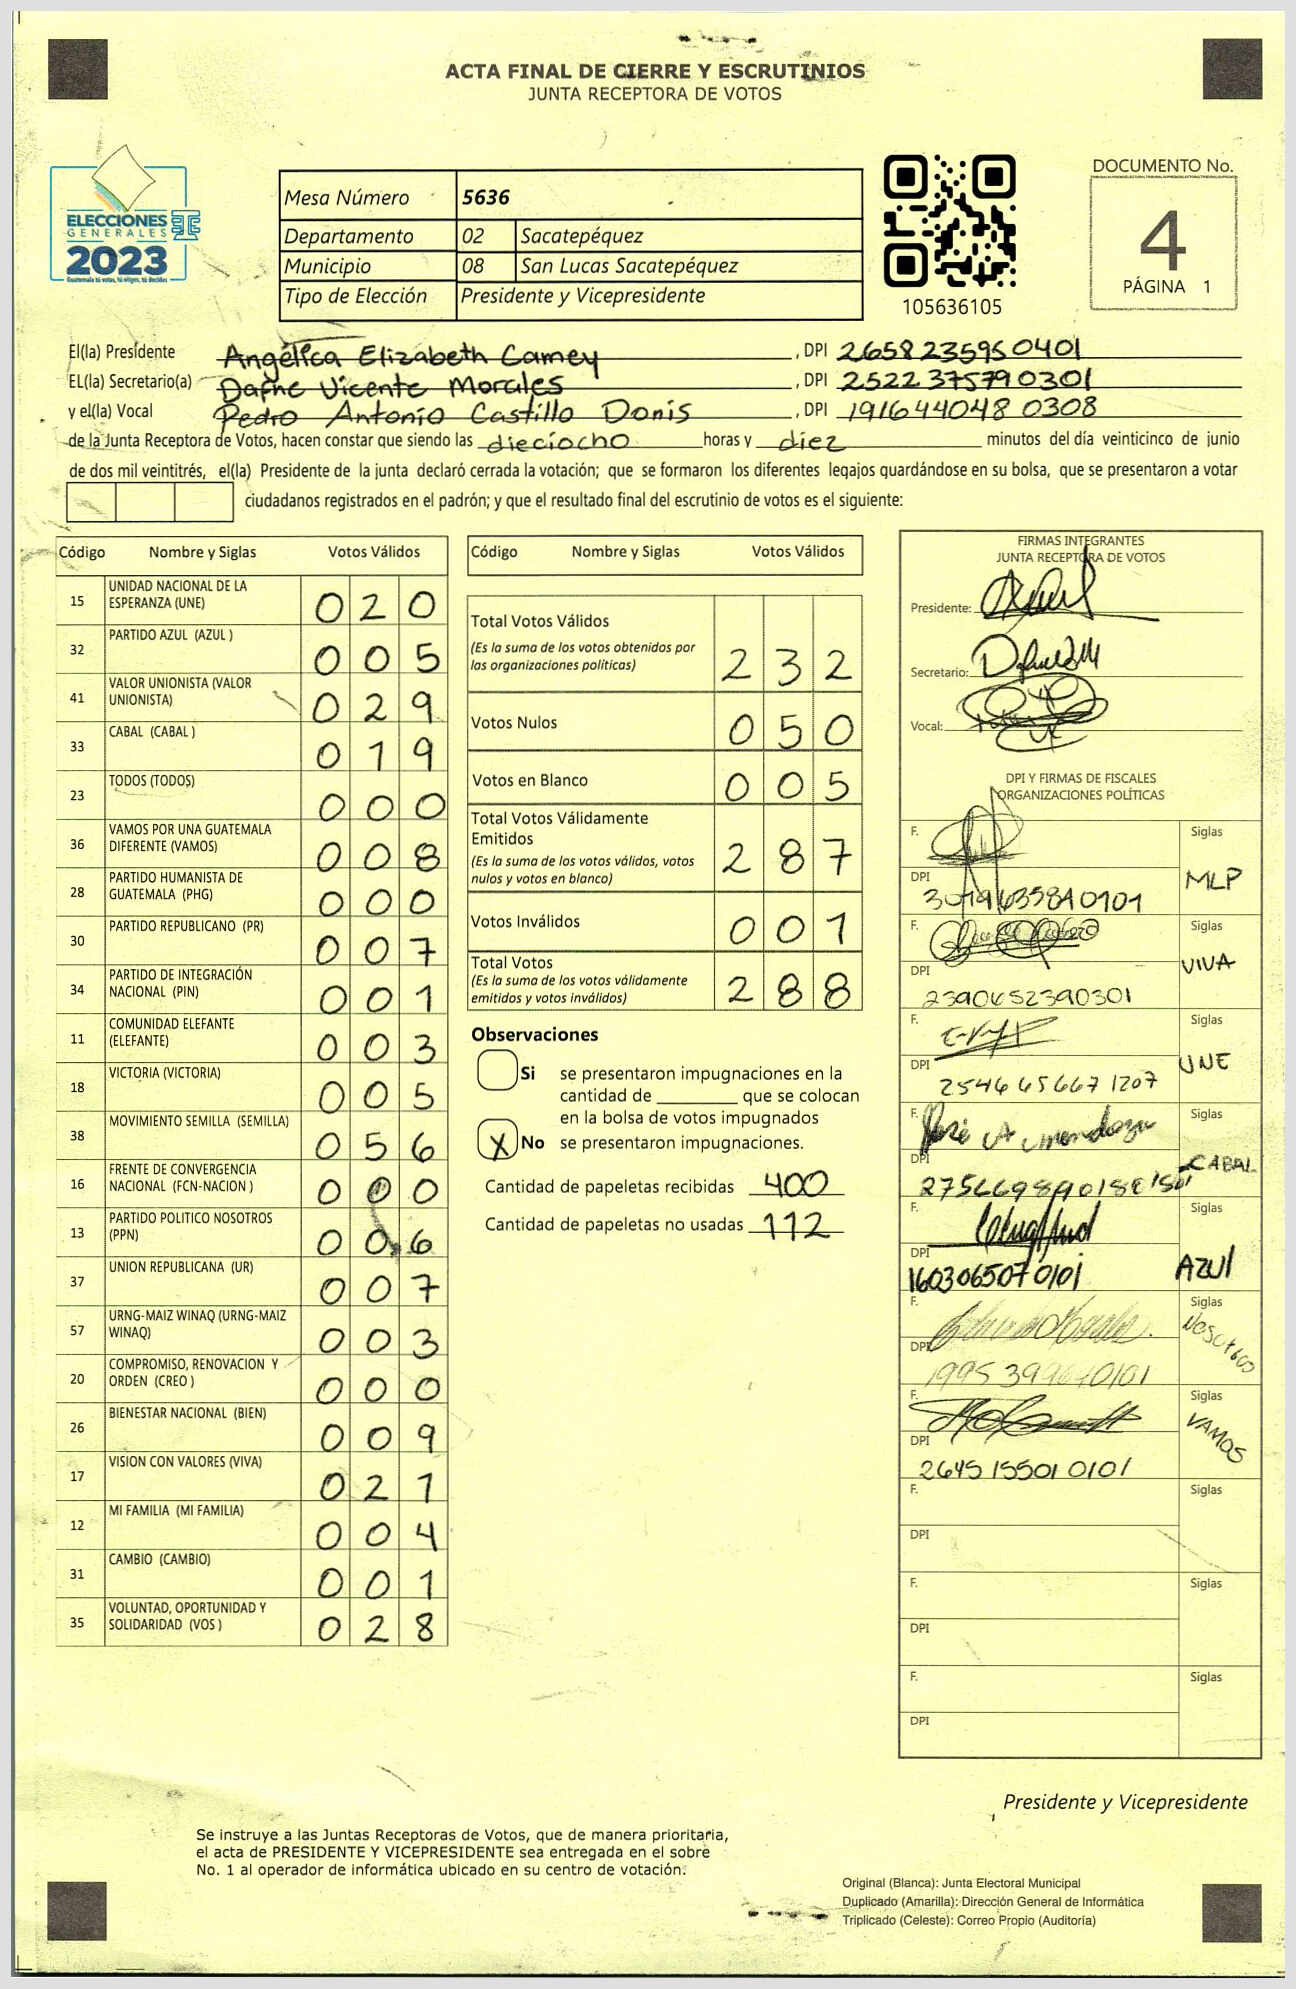 ACTA FINAL DE CIERRE Y ESCRUTINIOS
JUNTA RECEPTORA DE VOTOS
ELECCIONES
GENERALES
2023
Guatemala tú votas, tú eliges, tú decides
Mesa Número 5636
Departamento 02 Sacatepéquez
Municipio 08 San Lucas Sacatepéquez
Tipo de Elección Presidente y Vicepresidente
105636105
DOCUMENTO No.
4
PÁGINA 1
El(la) Presidente Angélica Elizabeth Camey, DPI 2658235950401
EL(la) Secretario(a) Dafne Vicente Morales, DPI 2522375790301
y el(la) Vocal Pedro Antonio Castillo Donis, DPI 191644048 0308
de la Junta Receptora de Votos, hacen constar que siendo las dieciocho horas y diez minutos del día veinticinco de junio
de dos mil veintitrés, el(la) Presidente de la junta declaró cerrada la votación; que se formaron los diferentes legajos guardándose en su bolsa, que se presentaron a votar
ciudadanos registrados en el padrón; y que el resultado final del escrutinio de votos es el siguiente:
Código Nombre y Siglas Votos Válidos
15 UNIDAD NACIONAL DE LA ESPERANZA (UNE) 020
32 PARTIDO AZUL (AZUL ) 005
41 VALOR UNIONISTA (VALOR UNIONISTA) 029
33 CABAL (CABAL ) 019
23 TODOS (TODOS) 000
36 VAMOS POR UNA GUATEMALA DIFERENTE (VAMOS) 008
28 PARTIDO HUMANISTA DE GUATEMALA (PHG) 000
30 PARTIDO REPUBLICANO (PR) 007
34 PARTIDO DE INTEGRACIÓN NACIONAL (PIN) 001
11 COMUNIDAD ELEFANTE (ELEFANTE) 003
18 VICTORIA (VICTORIA) 005
38 MOVIMIENTO SEMILLA (SEMILLA) 056
16 FRENTE DE CONVERGENCIA NACIONAL (FCN-NACION ) 000
13 PARTIDO POLITICO NOSOTROS (PPN) 006
37 UNION REPUBLICANA (UR) 007
57 URNG-MAIZ WINAQ (URNG-MAIZ WINAQ) 003
20 COMPROMISO, RENOVACION Y ORDEN (CREO ) 000
26 BIENESTAR NACIONAL (BIEN) 009
17 VISION CON VALORES (VIVA) 021
12 MI FAMILIA (MI FAMILIA) 004
31 CAMBIO (CAMBIO) 001
35 VOLUNTAD, OPORTUNIDAD Y SOLIDARIDAD (VOS ) 028
Código Nombre y Siglas Votos Válidos
Total Votos Válidos
(Es la suma de los votos obtenidos por
las organizaciones políticas) 232
Votos Nulos 050
Votos en Blanco 005
Total Votos Válidamente
Emitidos
(Es la suma de los votos válidos, votos
nulos y votos en blanco) 287
Votos Inválidos 001
Total Votos
(Es la suma de los votos válidamente
emitidos y votos inválidos) 288
Observaciones
Si se presentaron impugnaciones en la
cantidad de ________ que se colocan
en la bolsa de votos impugnados
X No se presentaron impugnaciones.
Cantidad de papeletas recibidas 400
Cantidad de papeletas no usadas 112
FIRMAS INTEGRANTES
JUNTA RECEPTORA DE VOTOS
Presidente:
Secretario:
Vocal:
DPI Y FIRMAS DE FISCALES
ORGANIZACIONES POLÍTICAS
F. Siglas
DPI MLP
F. Siglas
DPI VIVA
2390652390301
F. Siglas
DPI UNE
2546656671207
F. José A Mendoza Siglas
DPI CABAL
F. Siglas
DPI AZUl
1603065070101
F. Siglas
DPI Nosotros
F. Siglas
DPI VAMOS
2645155010101
F. Siglas
DPI
F. Siglas
DPI
F. Siglas
DPI
Presidente y Vicepresidente
Se instruye a las Juntas Receptoras de Votos, que de manera prioritaria,
el acta de PRESIDENTE Y VICEPRESIDENTE sea entregada en el sobre
No. 1 al operador de informática ubicado en su centro de votación.
Original (Blanca): Junta Electoral Municipal
Duplicado (Amarilla): Dirección General de Informática
Triplicado (Celeste): Correo Propio (Auditoría)